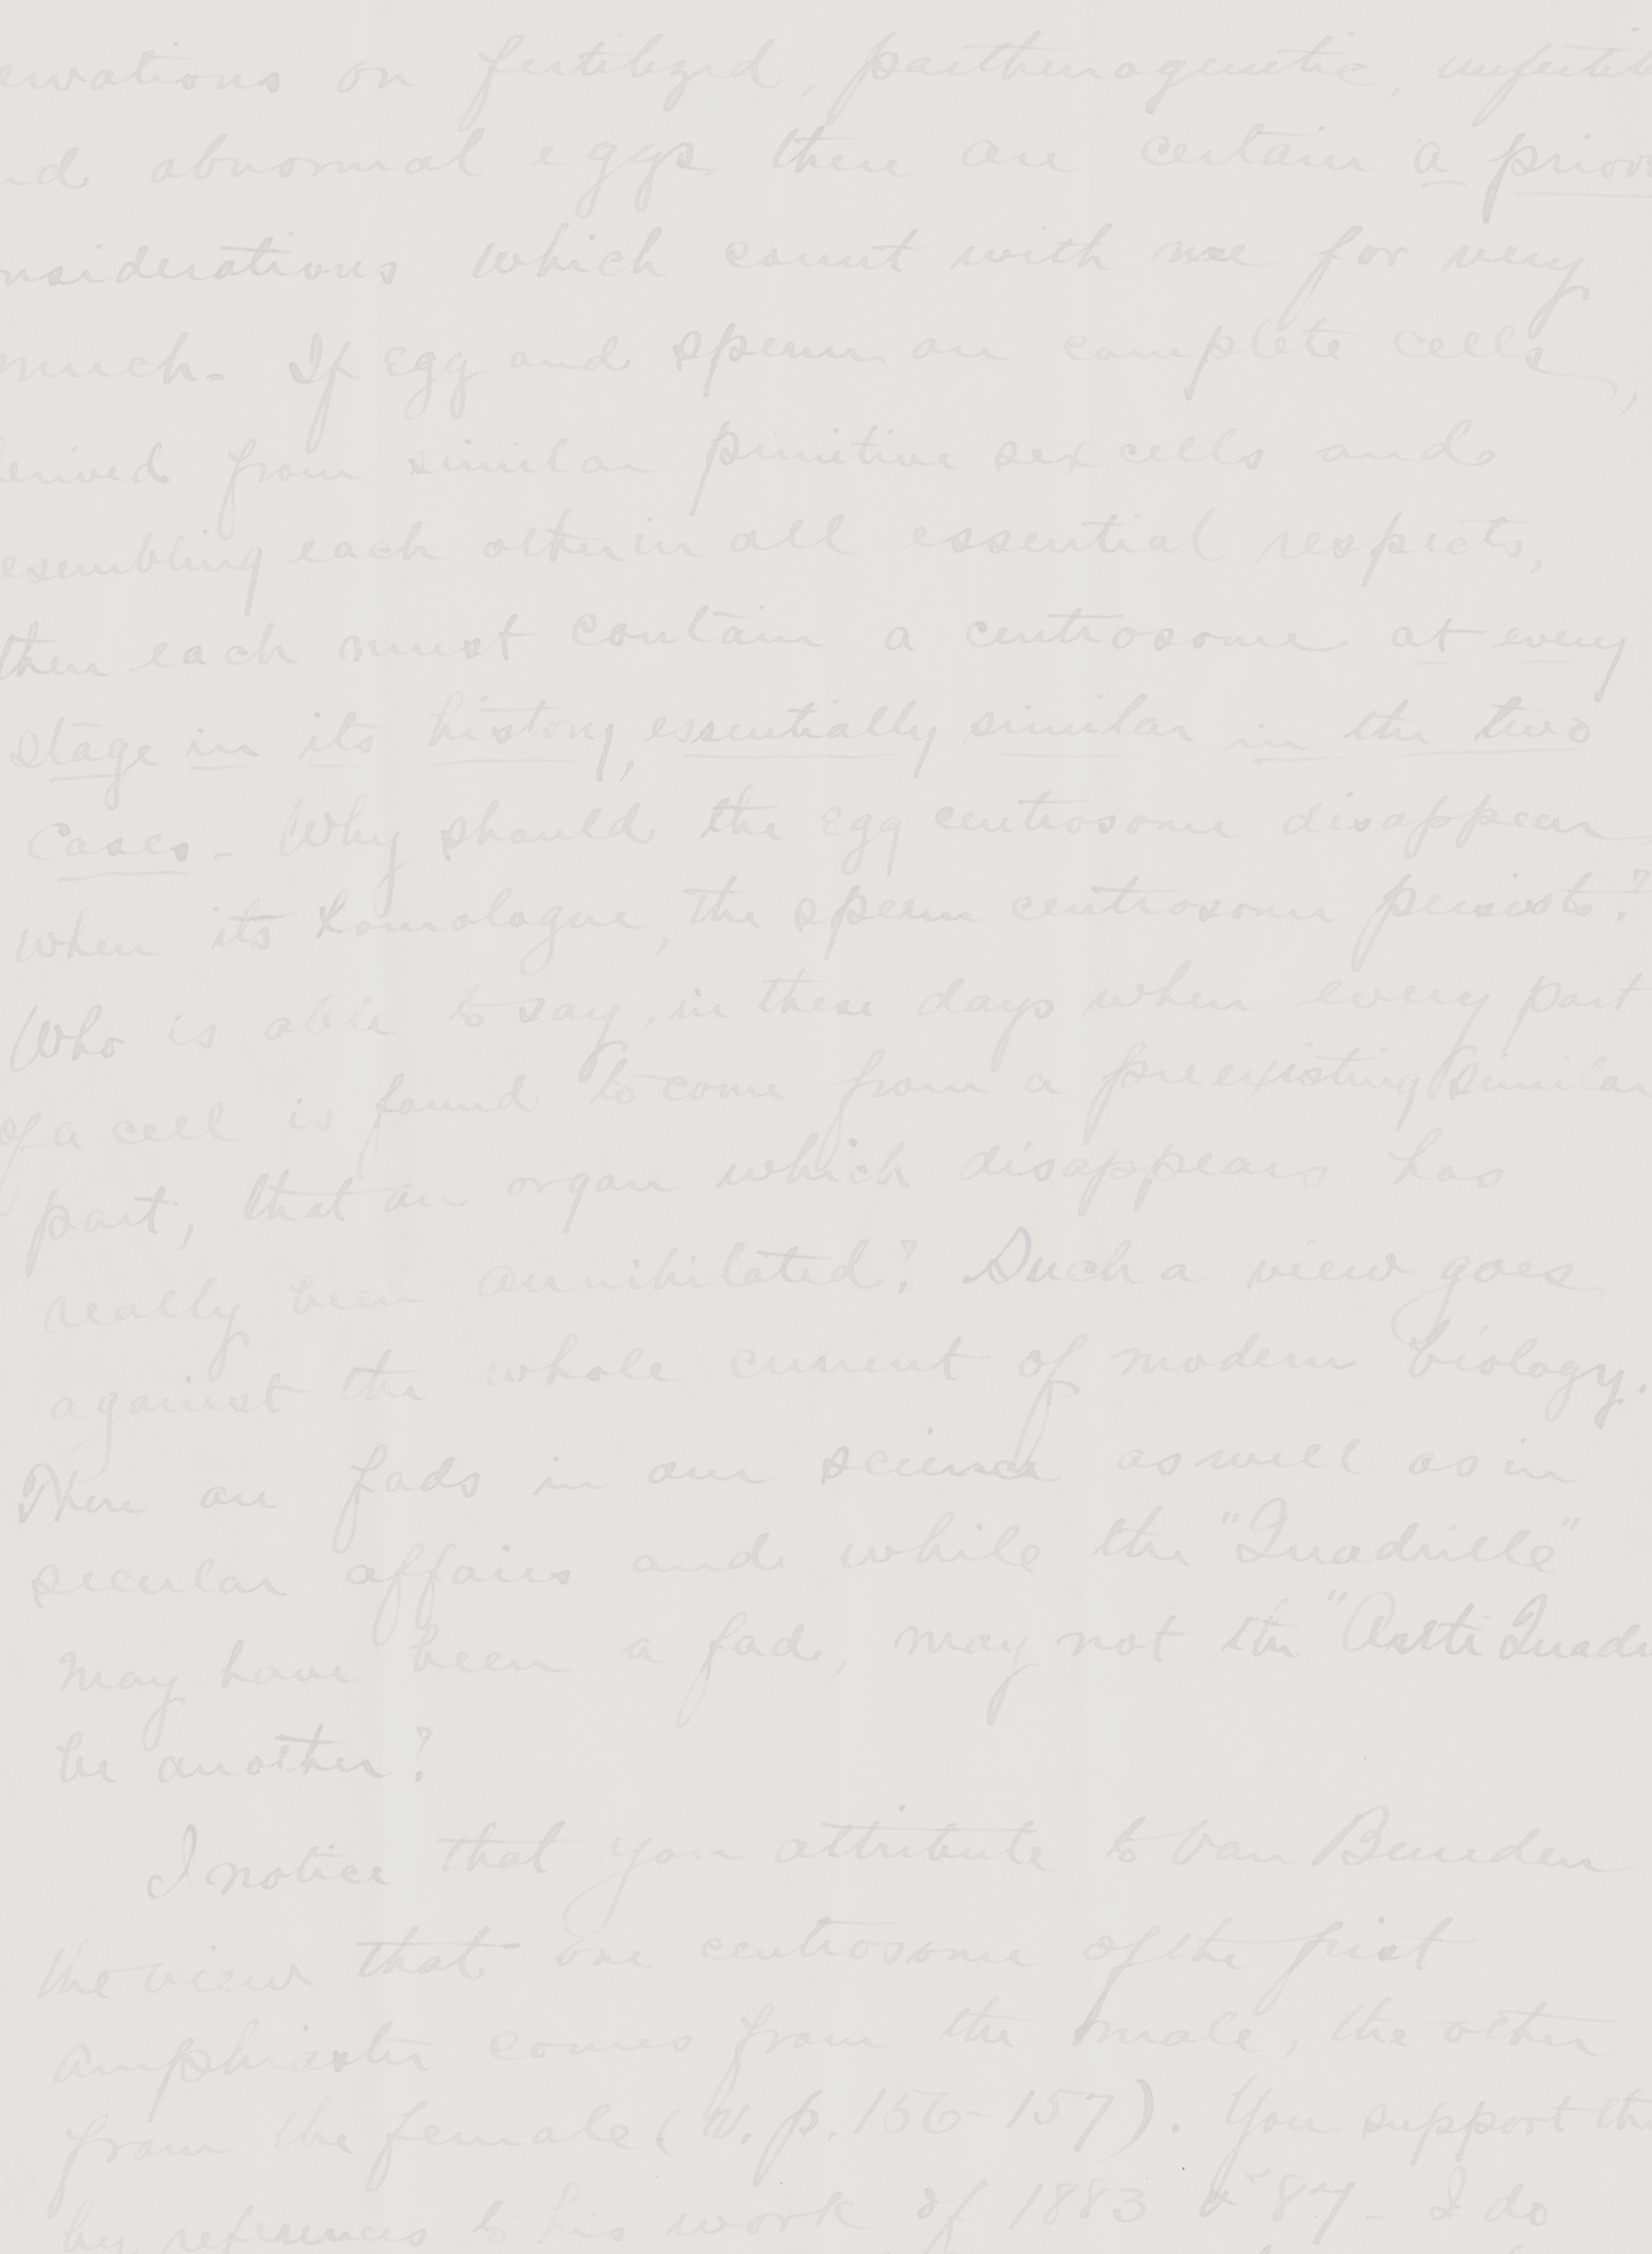 ervations on fertilized, parthenogenetic, unfertil
nd abnormal eggs there are certain a priori
nsiderations which count with me for very
much - If egg and sperm are complete cells,
derived from similar primitive sex cells and
esembling each other in all essential respects,
then each must contain a centrosome at every
stage in its history, essentially similar in the two
cases - Why should the egg centrosome disappear
when its homologue, the sperm centrosome persists?
Who is able to say, in these days when every part
of a cell is found to come from a preexisting similar
part, that an organ which disappears has
really been annihilated? Such a view goes
against the whole current of modern biology.
There are fads in our science as well as in
secular affairs and while the "Quadrille"
may have been a fad, may not the "Anti Quadr
be another?
I notice that you attribute to Van Beneden
the view that one centrosome of the first
amphiaster comes from the male, the other
from the female (v. p. 156-157). You support th
by references to his work of 1883 & '87 - I do